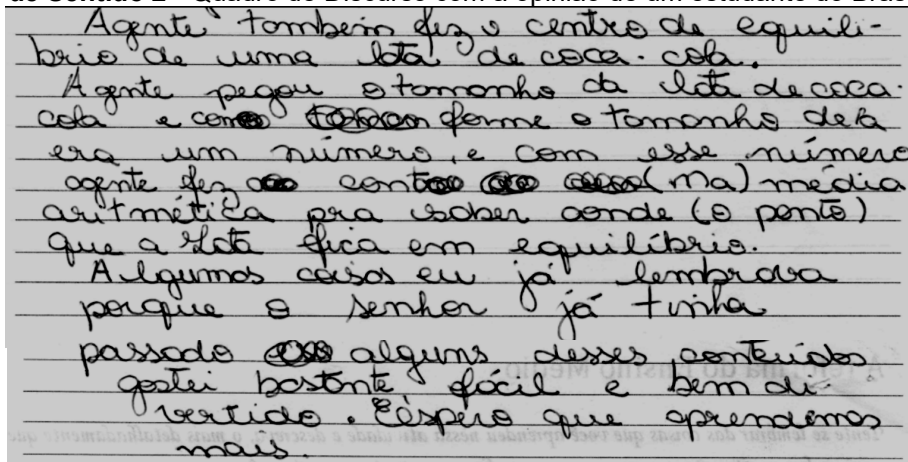 de Contexto 2 – Quadro de Discurso com a opinião de um estudante do Brasil
Agente tombeim fez o centro de equili-
brio de uma lata de coca-cola.
Agente pegou o tamanho da lata de coca-
cola e com forme o tamanho dela
era um número, e com esse número
agente fez conta (Ma) média
aritmética pra saber aonde (o ponto)
que a lata fica em equilíbrio.
Algumas coisas eu já lembrava
porque o senhor já tinha
passado alguns desses conteúdos
gostei bastante fácil e bem di-
vertido. Espero que aprendemos
mais.